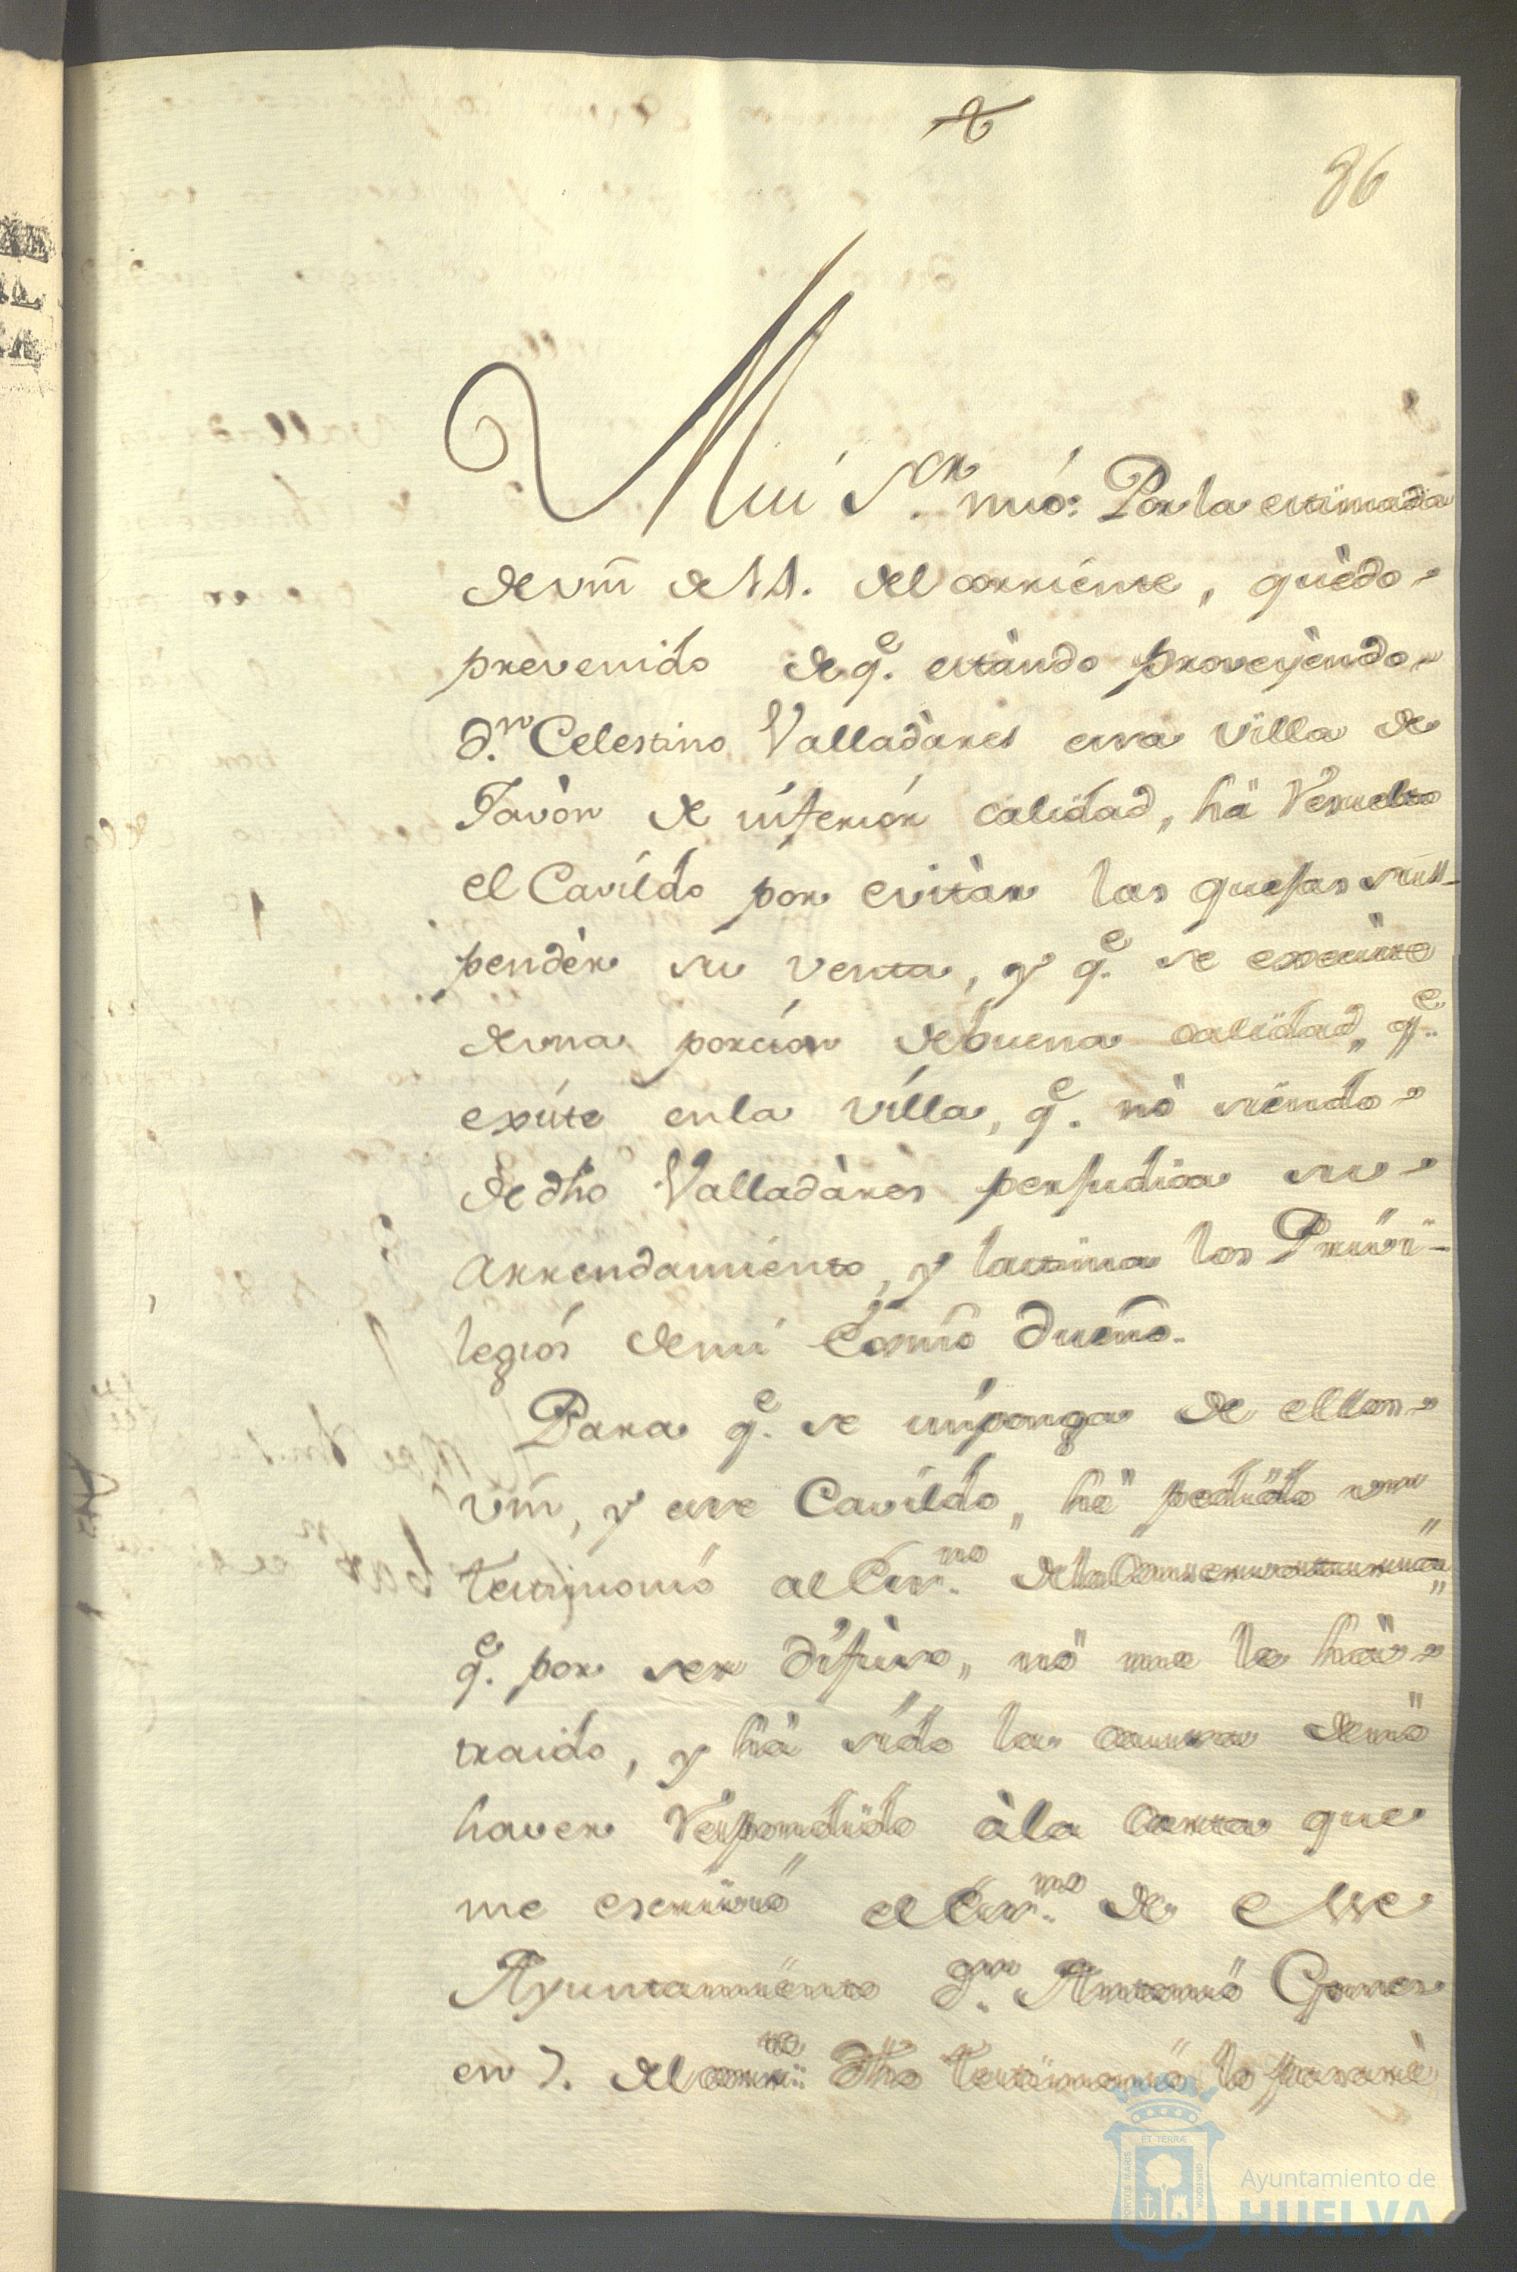 86
Mui S.or mio: Por la estimada
de vm de 11. del corriente, quedo
prevenido de q.e estàndo proveyèndo
d.n Celestino Valladàres essa villa de
Javòn de inferiòr calidad, hà Resuelto
el Cavildo por evitàr las quejas sus-
pendèr su venta, y q.e se execute
de una porción de buena calidad, q.e
existe en la villa, q.e nò siendo
de dho Valladàres perjudica su
arrendamiento, y lastima los Privi-
legiós de mi Exmo Dueño.
Para q.e se imponga de ellos
vm, y ese Cavildo, hè pedido un
testimonio al Ess.no de la
q.e por ser difuso, nò me lo hà
traido, y hà sido la causa de nò
haver Respondido à la Carta que
me escrivió el Ess.no de Esse
Ayuntamiento D.n Antonio Gomes
en 7. del corr.te dho testimonio lo passarè
Ayuntamiento de
HUELVA